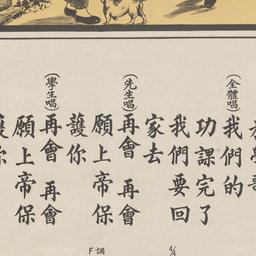 放學歌
(全體唱)
我們的
功課完了
我們要回
家去
(先生唱)
再會 再會
願上帝保
護你
(學生唱)
再會 再會
願上帝保
護你
F 調
4/4